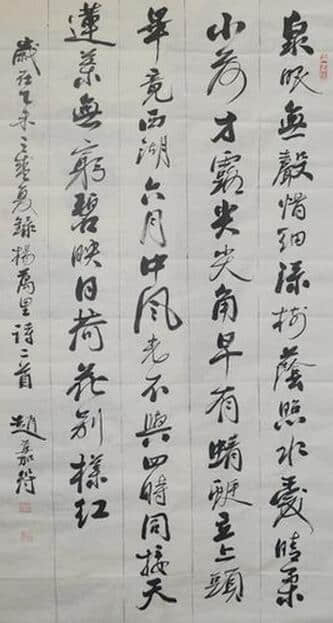 泉眼無聲惜細流樹蔭照水愛晴柔
小荷才露尖尖角早有蜻蜓立上頭
畢竟西湖六月中風光不與四時同接天
蓮葉無窮碧映日荷花別樣紅
歲在乙未之盛夏錄楊萬里詩二首 趙嘉符